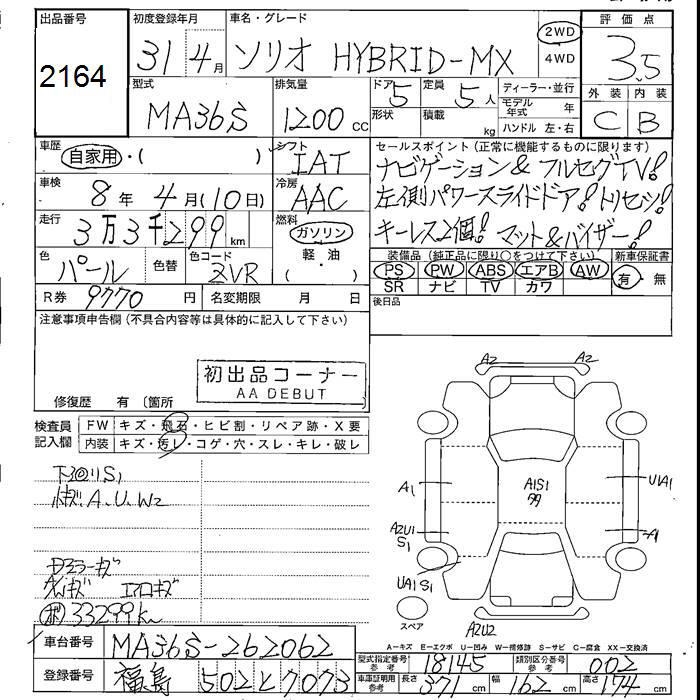 出品番号
2164
初度登録年月
31 4月
車名・グレード
ソリオ HYBRID-MX
2WD
4WD
評価点
3.5
外装 内装
C B
型式
MA36S
排気量
1200 cc
ドア 5 形状
定員 5人
積載 kg
ディーラー・並行
モデル年式 年
ハンドル 左・右
車歴
自家用・( )
シフト
IAT
車検
8年 4月(10日)
冷房
AAC
走行
3万3千299km
燃料
ガソリン
軽・油
( )
色
パール
色替
色コード
ZVR
R券 9770円
名変期限 月 日
セールスポイント(正常に機能するものに限ります)
ナビゲーション& フルセグTV!
左側パワースライドドア! トリセツ!
キーレス2個! マット&バイザー!
装備品(純正品に限り○をつけて下さい)
新車保証書
PS PW ABS エアB AW
SR ナビ TV カワ
有・無
後日品
注意事項申告欄(不具合内容等は具体的に記入して下さい)
初出品コーナー
AA DEBUT
修復歴 有〔箇所
検査員記入欄
FW キズ・飛石・ヒビ割・リペア跡・X要
内装 キズ・汚レ・コゲ・穴・スレ・キレ・破レ
S1
A.U.W2
ミラーキズ
エアロキズ
33299km
A2 A2
A1
A1S1
UA1
A2U1
S1
A1
UA1S1
A2U2
スペア
A-キズ E-エクボ U-凹み W-補修跡 S-サビ C-腐食 XX-交換済
車台番号
MA36S-262062
登録番号
福島 502と7073
型式指定番号参考
18145
類別区分番号参考
002
車庫証明用参考
長さ 371cm 幅 162cm 高さ 174cm